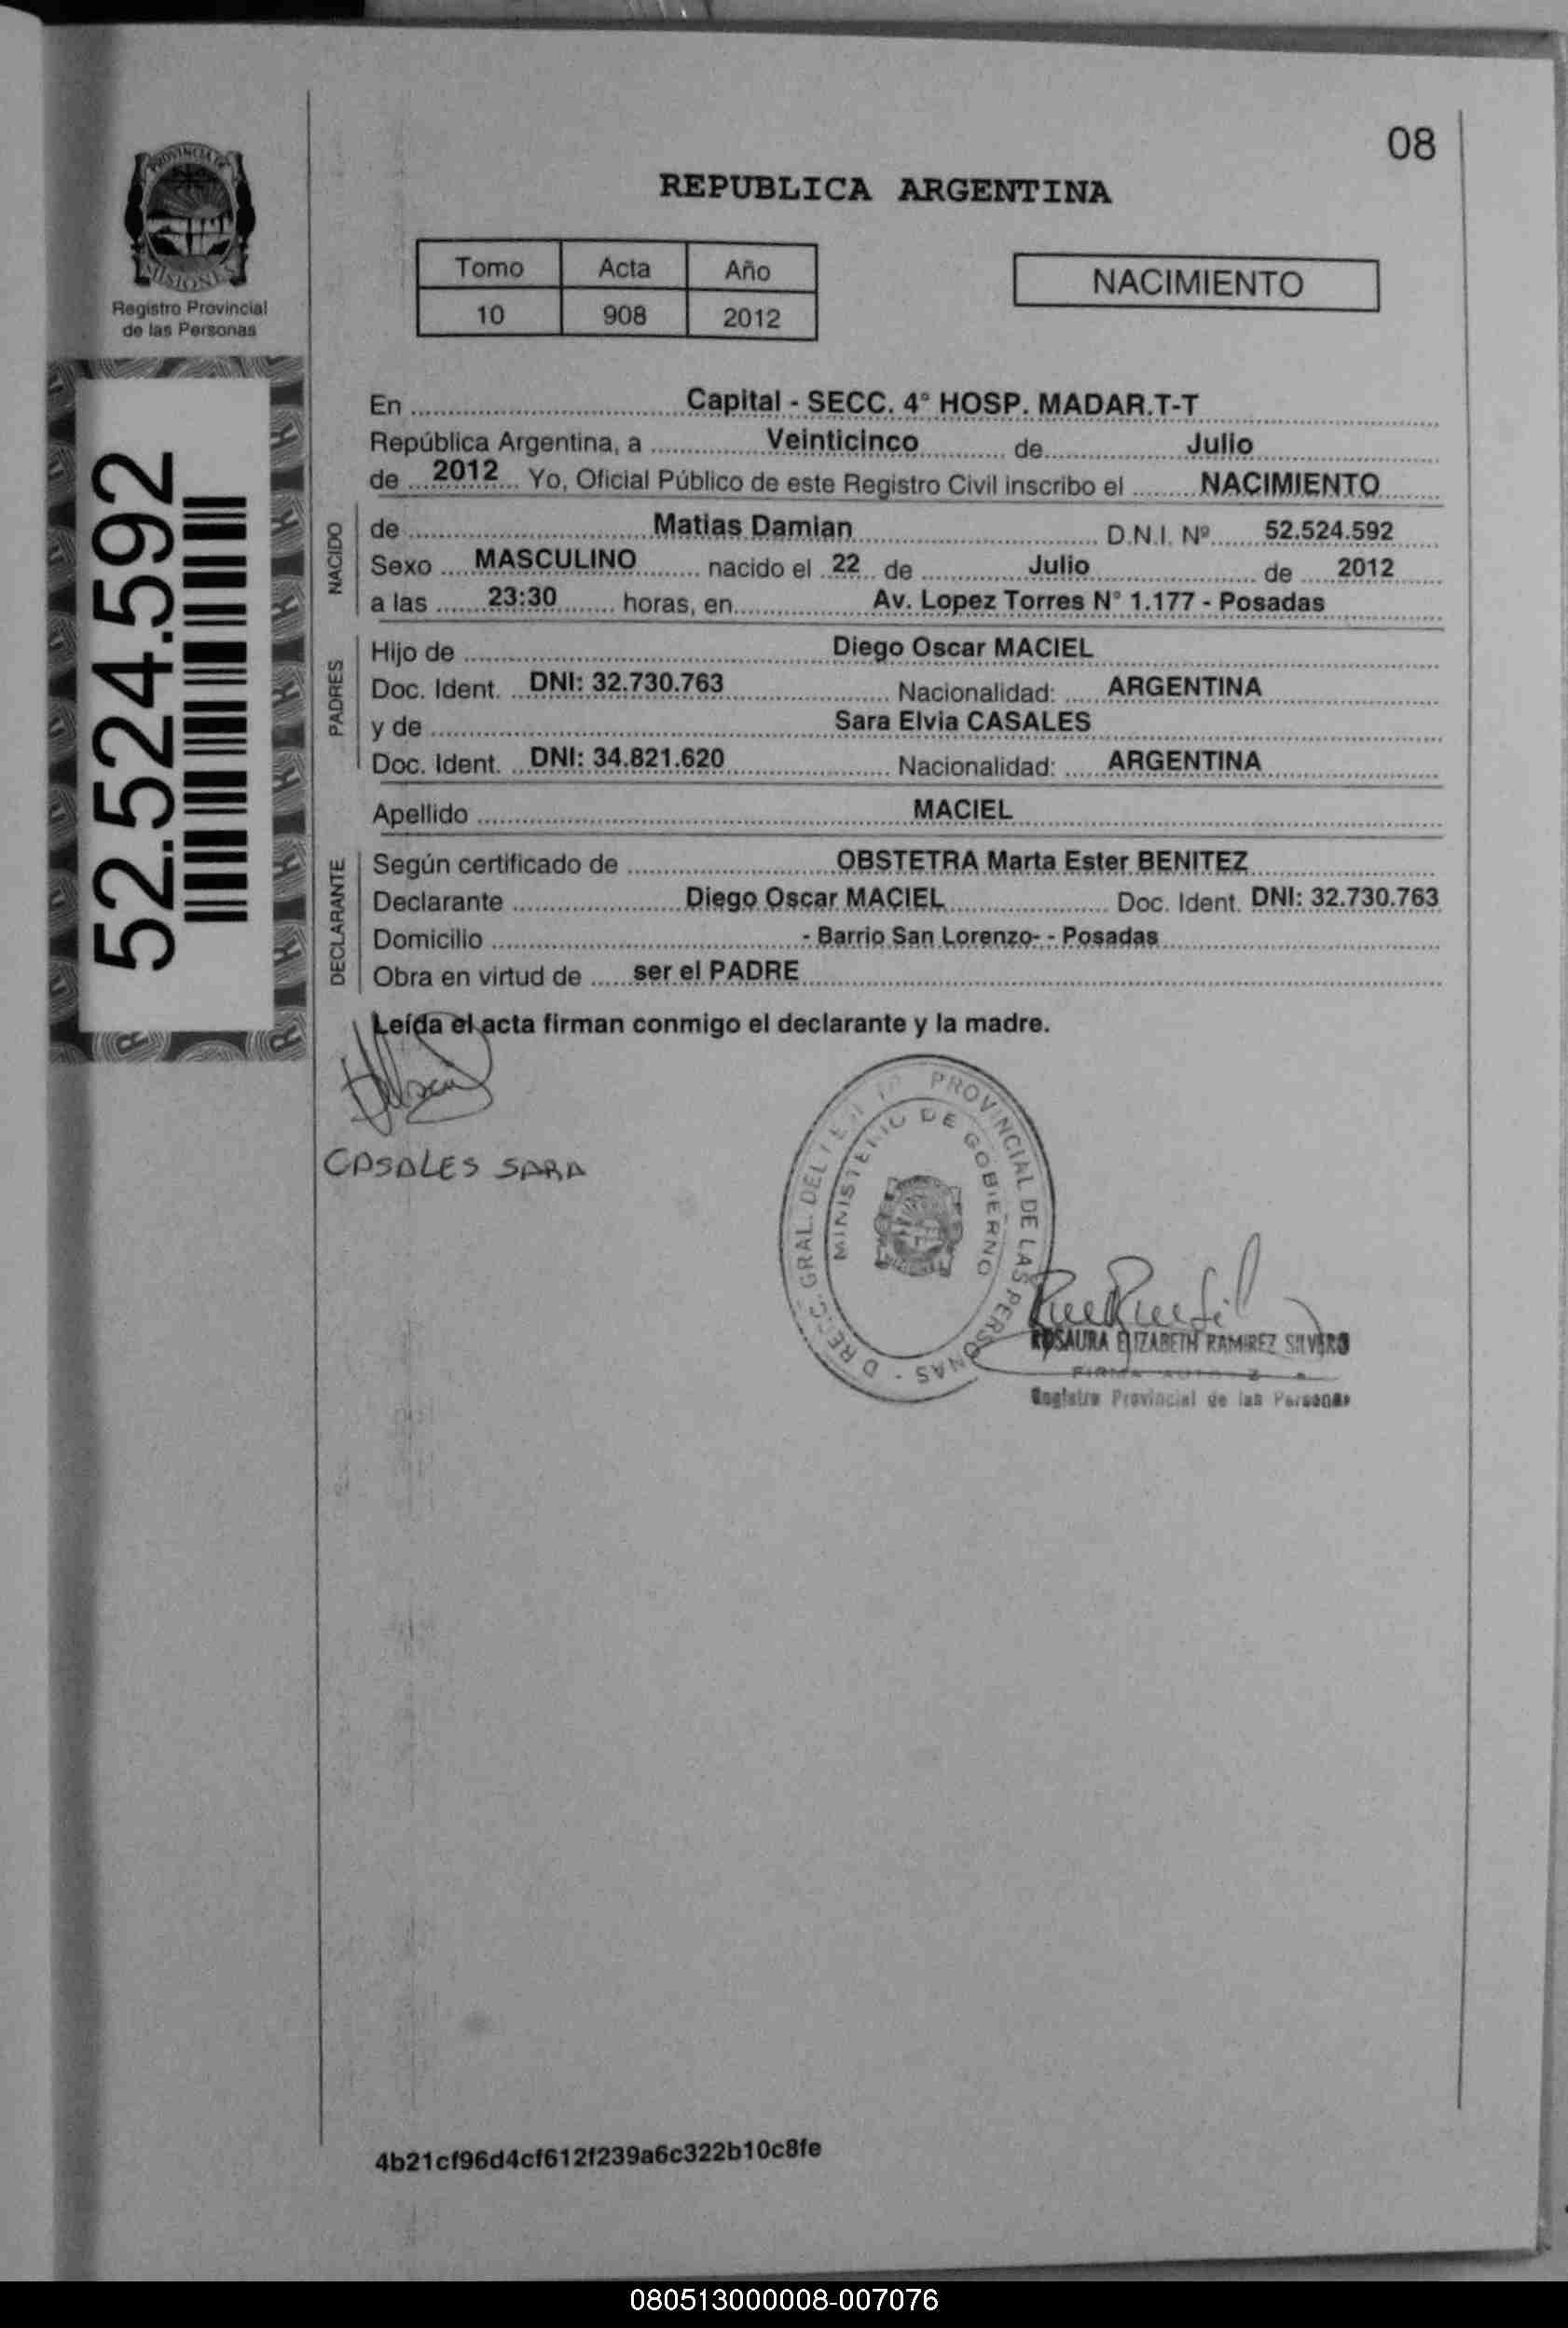 08
PROVINCIA DE
MISIONES
Registro Provincial
de las Personas
REPUBLICA ARGENTINA
Tomo Acta Año
10 908 2012
NACIMIENTO
52.524.592
En Capital - SECC. 4° HOSP. MADAR.T-T
República Argentina, a Veinticinco de Julio
de 2012 Yo, Oficial Público de este Registro Civil inscribo el NACIMIENTO
NACIDO
de Matias Damian D.N.I. Nº 52.524.592
Sexo MASCULINO nacido el 22 de Julio de 2012
a las 23:30 horas, en Av. Lopez Torres N° 1.177 - Posadas
PADRES
Hijo de Diego Oscar MACIEL
Doc. Ident. DNI: 32.730.763 Nacionalidad: ARGENTINA
y de Sara Elvia CASALES
Doc. Ident. DNI: 34.821.620 Nacionalidad: ARGENTINA
Apellido MACIEL
DECLARANTE
Según certificado de OBSTETRA Marta Ester BENITEZ
Declarante Diego Oscar MACIEL Doc. Ident. DNI: 32.730.763
Domicilio - Barrio San Lorenzo- - Posadas
Obra en virtud de ser el PADRE
Leída el acta firman conmigo el declarante y la madre.
CASALES SARA
GRAL. DEL PROVINCIAL DE LAS PERSONAS -
MINISTERIO DE GOBIERNO
ROSAURA ELIZABETH RAMIREZ SILVERO
FIRMA
Registro Provincial de las Personas
4b21cf96d4cf612f239a6c322b10c8fe
080513000008-007076